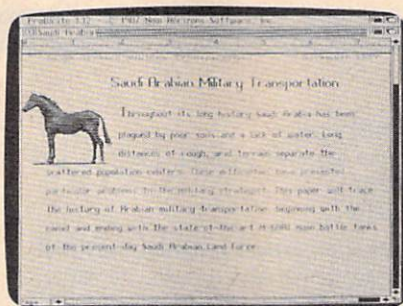 ProWrite 1.1 © 1987 New Horizons Software, Inc.
Saudi Arabia
Saudi Arabian Military Transportation
Throughout its long history Saudi Arabia has been
plagued by poor soils and a lack of water. Long
distances of rough, arid terrain separate the
scattered population centers. These difficulties have presented
particular problems to the military strategist. This paper will trace
the history of Arabian military transportation, beginning with the
camel and ending with the state-of-the-art main battle tanks
of the present-day Saudi Arabian Land Force.